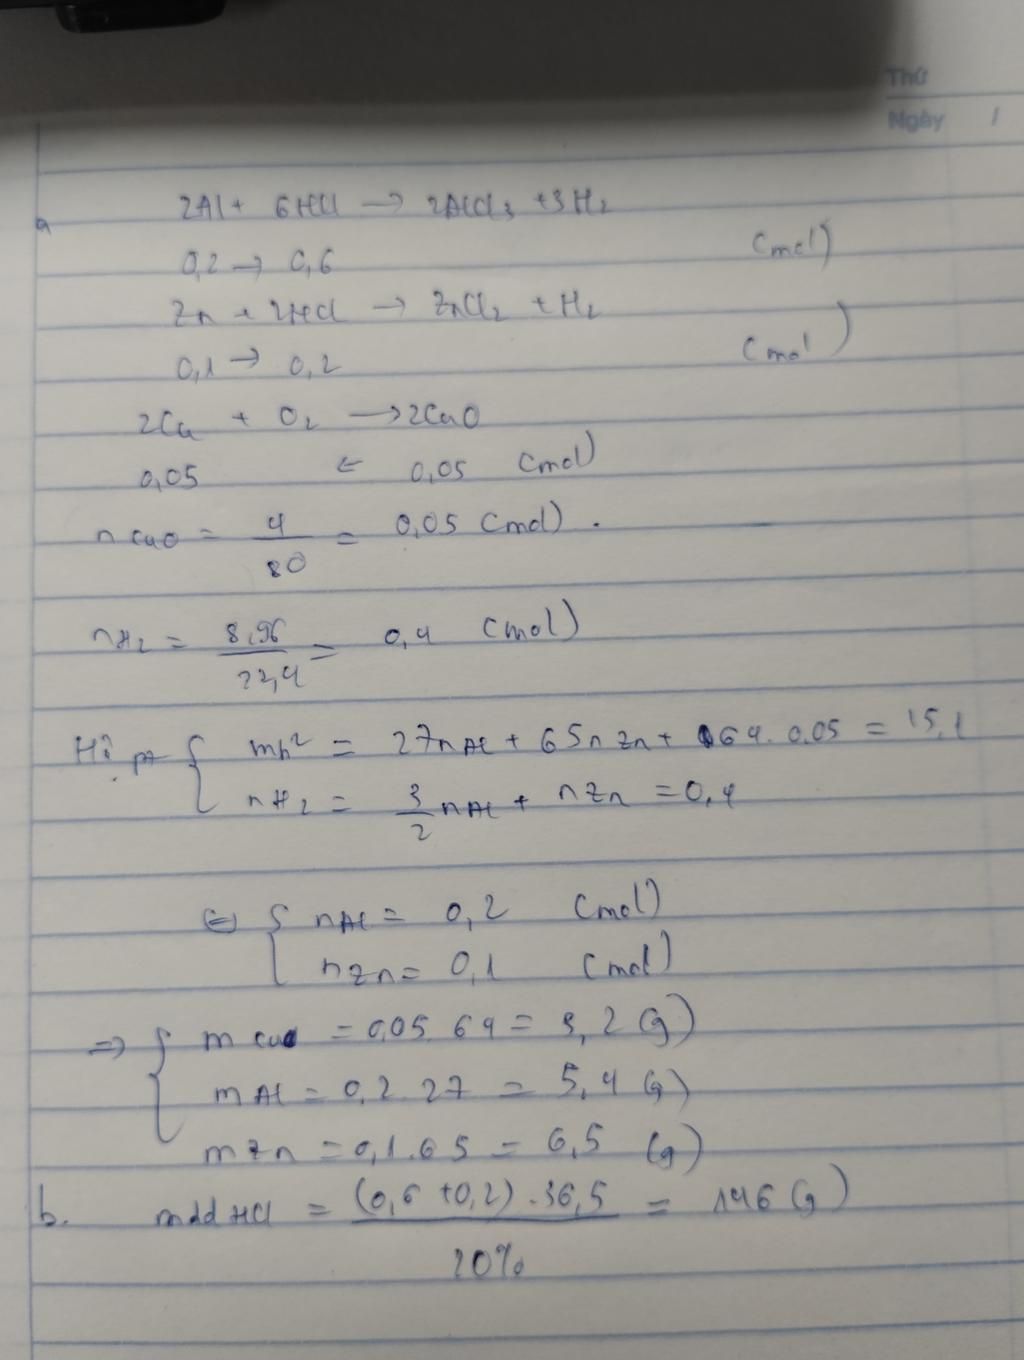 Thứ
Ngày /
a 2Al + 6HCl → 2AlCl3 + 3H2
0,2 → 0,6 (mol)
Zn + 2HCl → ZnCl2 + H2
0,1 → 0,2 (mol)
2Cu + O2 → 2CuO
0,05 ← 0,05 (mol)
n CuO = 4/80 = 0,05 (mol).
nH2 = 8,96/22,4 = 0,4 (mol)
Hệ pt { mh² = 27nAl + 65nZn + 64.0,05 = 15,1
nH2 = 3/2 nAl + nZn = 0,4
⇔ { nAl = 0,2 (mol)
nZn = 0,1 (mol)
⇒ { m Cu = 0,05.64 = 3,2 (g)
mAl = 0,2.27 = 5,4 (g)
mZn = 0,1.65 = 6,5 (g)
b. mddHCl = (0,6 + 0,2).36,5 / 20% = 146 (g)